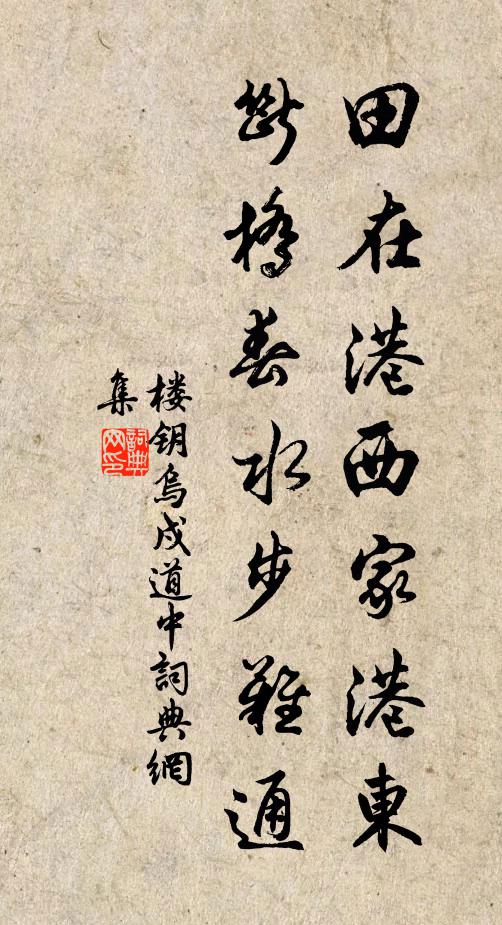 田在港西家港東
斷橋春水步難通
楼钥烏戍道中詞典網
集
詞典
网印